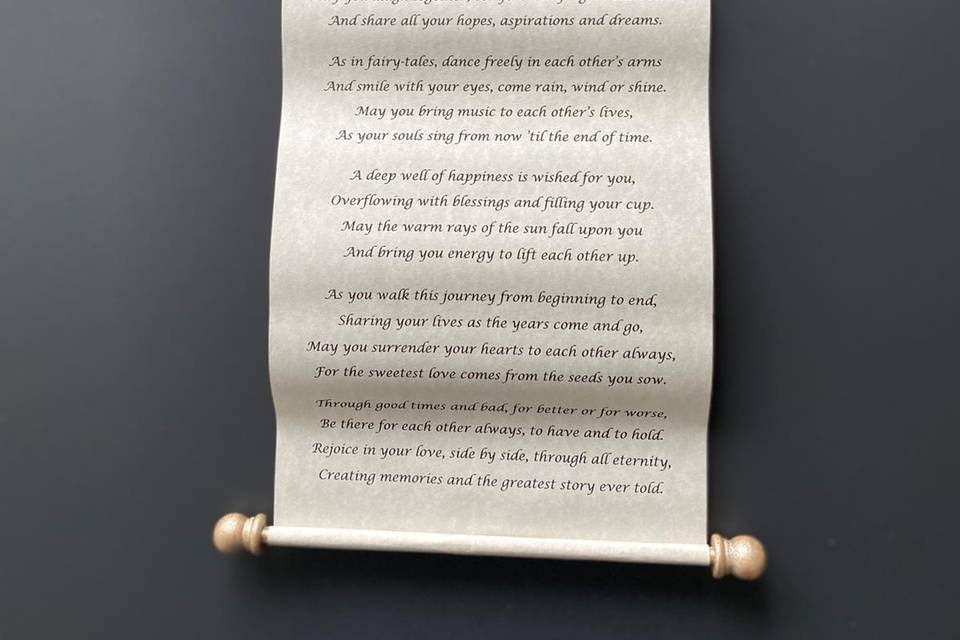 And share all your hopes, aspirations and dreams.
As in fairy-tales, dance freely in each other's arms
And smile with your eyes, come rain, wind or shine.
May you bring music to each other's lives,
As your souls sing from now 'til the end of time.
A deep well of happiness is wished for you,
Overflowing with blessings and filling your cup.
May the warm rays of the sun fall upon you
And bring you energy to lift each other up.
As you walk this journey from beginning to end,
Sharing your lives as the years come and go,
May you surrender your hearts to each other always,
For the sweetest love comes from the seeds you sow.
Through good times and bad, for better or for worse,
Be there for each other always, to have and to hold.
Rejoice in your love, side by side, through all eternity,
Creating memories and the greatest story ever told.